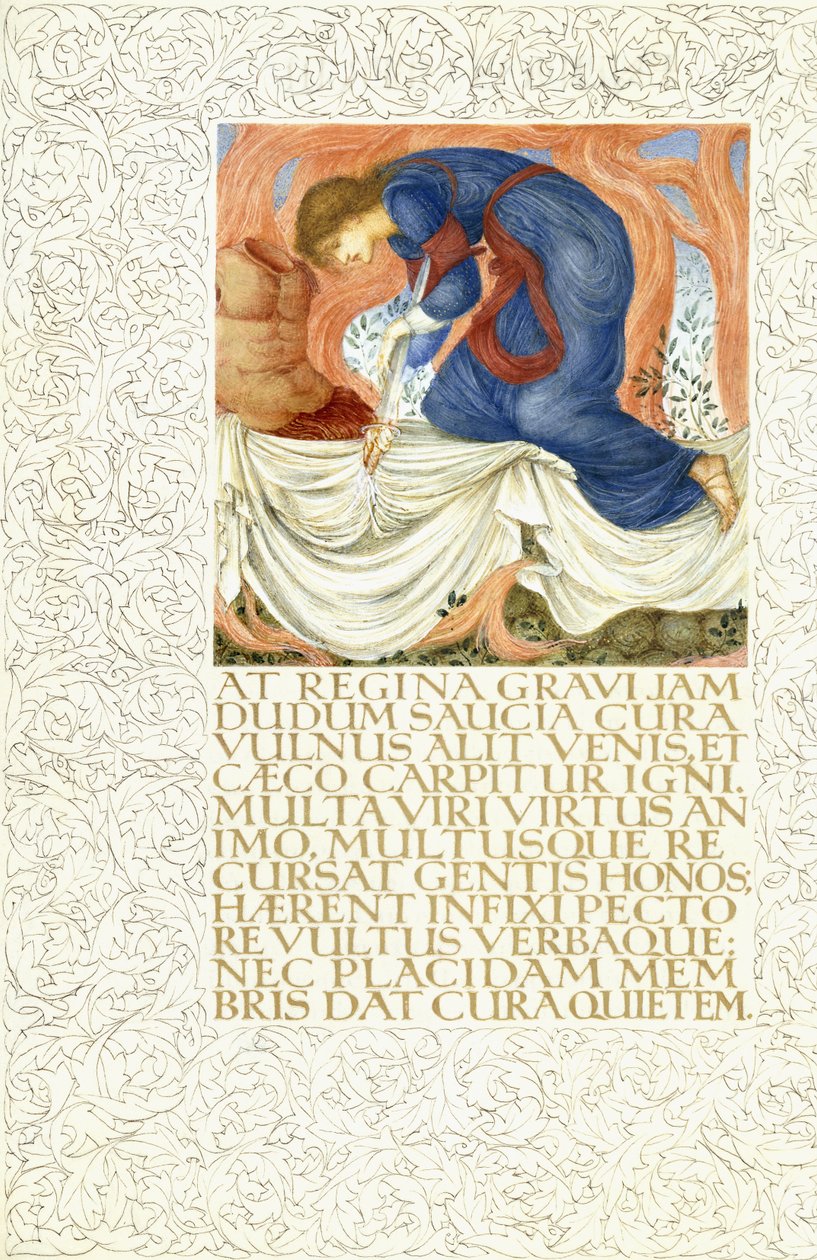 AT REGINA GRAVI JAM
DUDUM SAUCIA CURA
VULNUS ALIT VENIS, ET
CÆCO CARPITUR IGNI.
MULTA VIRI VIRTUS AN
IMO, MULTUSQUE RE
CURSAT GENTIS HONOS;
HÆRENT INFIXI PECTO
RE VULTUS VERBAQUE:
NEC PLACIDAM MEM
BRIS DAT CURA QUIETEM.